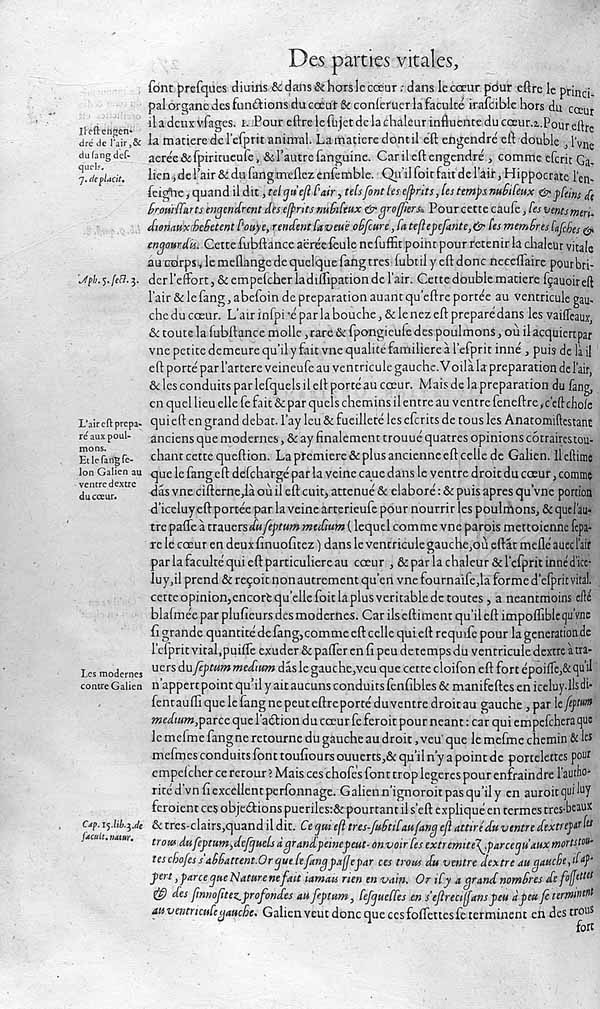 Des parties vitales,
ſont preſques diuins & dans & hors le cœur: dans le cœur pour eſtre le princi-
pal organe des functions du cœur & conſeruer la faculté iraſcible hors du cœur
il a deux vſages. 1. Pour eſtre le ſujet de la chaleur influente du cœur. 2. Pour eſtre
la matiere de l'eſprit animal. La matiere dont il eſt engendré eſt double, l'vne
aerée & ſpiritueuſe, & l'autre ſanguine. Car il eſt engendré, comme eſcrit Ga-
lien, de l'air & du ſang meſlez enſemble. Qu'il ſoit fait de l'air, Hippocrate l'en-
ſeigne, quand il dit, tel qu'eſt l'air, tels ſont les eſprits, les temps nubileux & pleins de
brouillarts engendrent des eſprits nubileux & groſſiers. Pour cette cauſe, les vents meri-
dionaux hebetent l'ouye, rendent la veuë obſcure, la teſte peſante, & les membres laſches &
engourdis. Cette ſubſtance aërée ſeule ne ſuffit point pour retenir la chaleur vitale
au corps, le meſlange de quelque ſang tres ſubtil y eſt donc neceſſaire pour bri-
der l'effort, & empeſcher la diſſipation de l'air. Cette double matiere ſçauoir eſt
l'air & le ſang, a beſoin de preparation auant qu'eſtre portée au ventricule gau-
che du cœur. L'air inſpiré par la bouche, & le nez eſt preparé dans les vaiſſeaux,
& toute la ſubſtance molle, rare & ſpongieuſe des poulmons, où il acquiert par
vne petite demeure qu'il y fait vne qualité familiere à l'eſprit inné, puis de là il
eſt porté par l'artere veineuſe au ventricule gauche. Voilà la preparation de l'air,
& les conduits par leſquels il eſt porté au cœur. Mais de la preparation du ſang,
en quel lieu elle ſe fait & par quels chemins il entre au ventre ſeneſtre, c'eſt choſe
qui eſt en grand debat. I'ay leu & fueilleté les eſcrits de tous les Anatomiſtes tant
anciens que modernes, & ay finalement trouué quatres opinions cõtraires tou-
chant cette queſtion. La premiere & plus ancienne eſt celle de Galien. Il eſtime
que le ſang eſt deſchargé par la veine caue dans le ventre droit du cœur, comme
dãs vne ciſterne, là où il eſt cuit, attenué & elaboré: & puis apres qu'vne portion
d'iceluy eſt portée par la veine arterieuſe pour nourrir les poulmons, & que l'au-
tre paſſe à trauers du ſeptum medium (lequel comme vne parois mettoienne ſepa-
re le cœur en deux ſinuoſitez) dans le ventricule gauche, où eſtãt meſlé auec l'air
par la faculté qui eſt particuliere au cœur, & par la chaleur & l'eſprit inné d'ice-
luy, il prend & reçoit non autrement qu'en vne fournaiſe, la forme d'eſprit vital.
cette opinion, encore qu'elle ſoit la plus veritable de toutes, a neantmoins eſté
blaſmée par pluſieurs des modernes. Car ils eſtiment qu'il eſt impoſſible qu'vne
ſi grande quantité de ſang, comme eſt celle qui eſt requiſe pour la generation de
l'eſprit vital, puiſſe exuder & paſſer en ſi peu de temps du ventricule dextre à tra-
uers du ſeptum medium dãs le gauche, veu que cette cloiſon eſt fort époiſſe, & qu'il
n'appert point qu'il y ait aucuns conduits ſenſibles & manifeſtes en iceluy. Ils di-
ſent auſſi que le ſang ne peut eſtre porté du ventre droit au gauche, par le ſeptum
medium, parce que l'action du cœur ſe feroit pour neant: car qui empeſchera que
le meſme ſang ne retourne du gauche au droit, veu que le meſme chemin & les
meſmes conduits ſont touſiours ouuerts, & qu'il n'y a point de portelettes pour
empeſcher ce retour? Mais ces choſes ſont trop legeres pour enfraindre l'autho-
rité d'vn ſi excellent perſonnage. Galien n'ignoroit pas qu'il y en auroit qui luy
feroient ces objections pueriles: & pourtant il s'eſt expliqué en termes tres-beaux
& tres-clairs, quand il dit. Ce qui eſt tres-ſubtil au ſang eſt attiré du ventre dextre par les
trous du ſeptum, deſquels à grand peine peut-on voir les extremitez, parce qu'aux morts tou-
tes choſes s'abbattent. Or que le ſang paſſe par ces trous du ventre dextre au gauche, il ap-
pert, parce que Nature ne fait iamais rien en vain. Or il y a grand nombres de foſſettes
& des ſinnoſitez profondes au ſeptum, leſquelles en s'eſtreciſſans peu à peu ſe terminent
au ventricule gauche. Galien veut donc que ces foſſettes ſe terminent en des trous
fort
Il eſt engen-
dré de l'air, &
du ſang deſ-
quels.
7. de placit.
Aph. 5. ſect. 3.
L'air eſt prepa-
ré aux poul-
mons.
Et le ſang ſe-
lon Galien au
ventre dextre
du cœur.
Les modernes
contre Galien
Cap. 15. lib. 3. de
facult. natur.